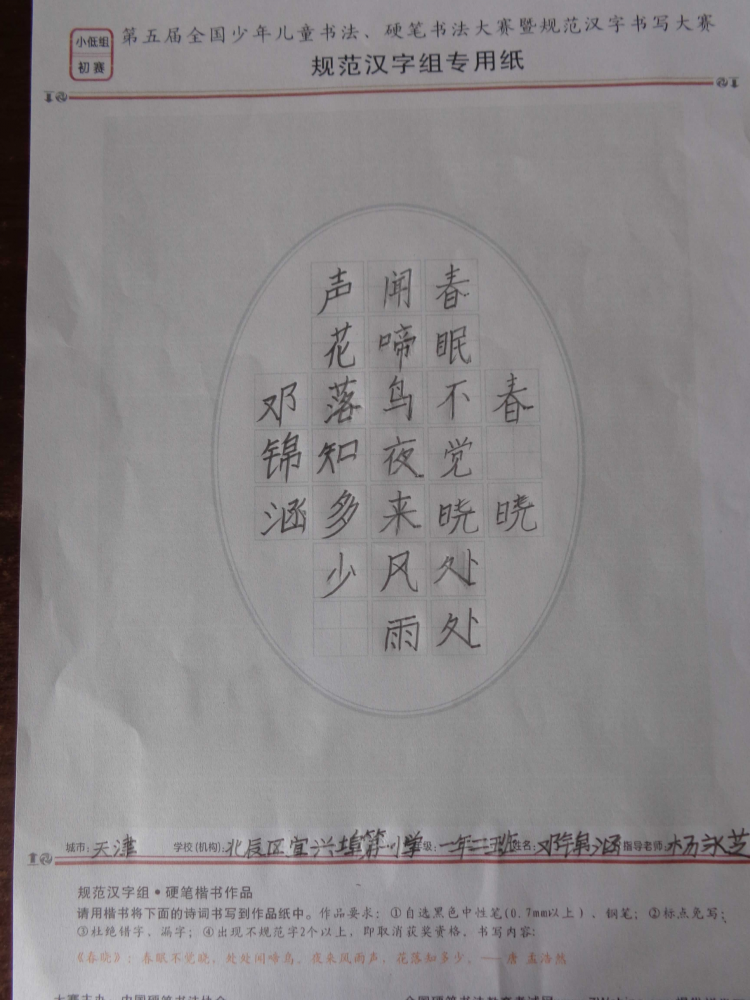 小低组
初赛
第五届全国少年儿童书法、硬笔书法大赛暨规范汉字书写大赛
规范汉字组专用纸
春晓
春眠不觉晓处处
闻啼鸟夜来风雨
声花落知多少
邓锦涵
城市:天津 学校(机构):北辰区宜兴埠第小学 级:一年二班 姓名:邓锦涵 指导老师:杨永芝
规范汉字组·硬笔楷书作品
请用楷书将下面的诗词书写到作品纸中。作品要求:①自选黑色中性笔(0.7mm以上)、钢笔;②标点免写;
③杜绝错字,漏字;④出现不规范字2个以上,即取消获奖资格,书写内容:
《春晓》:春眠不觉晓,处处闻啼鸟。夜来风雨声,花落知多少。——唐 孟浩然